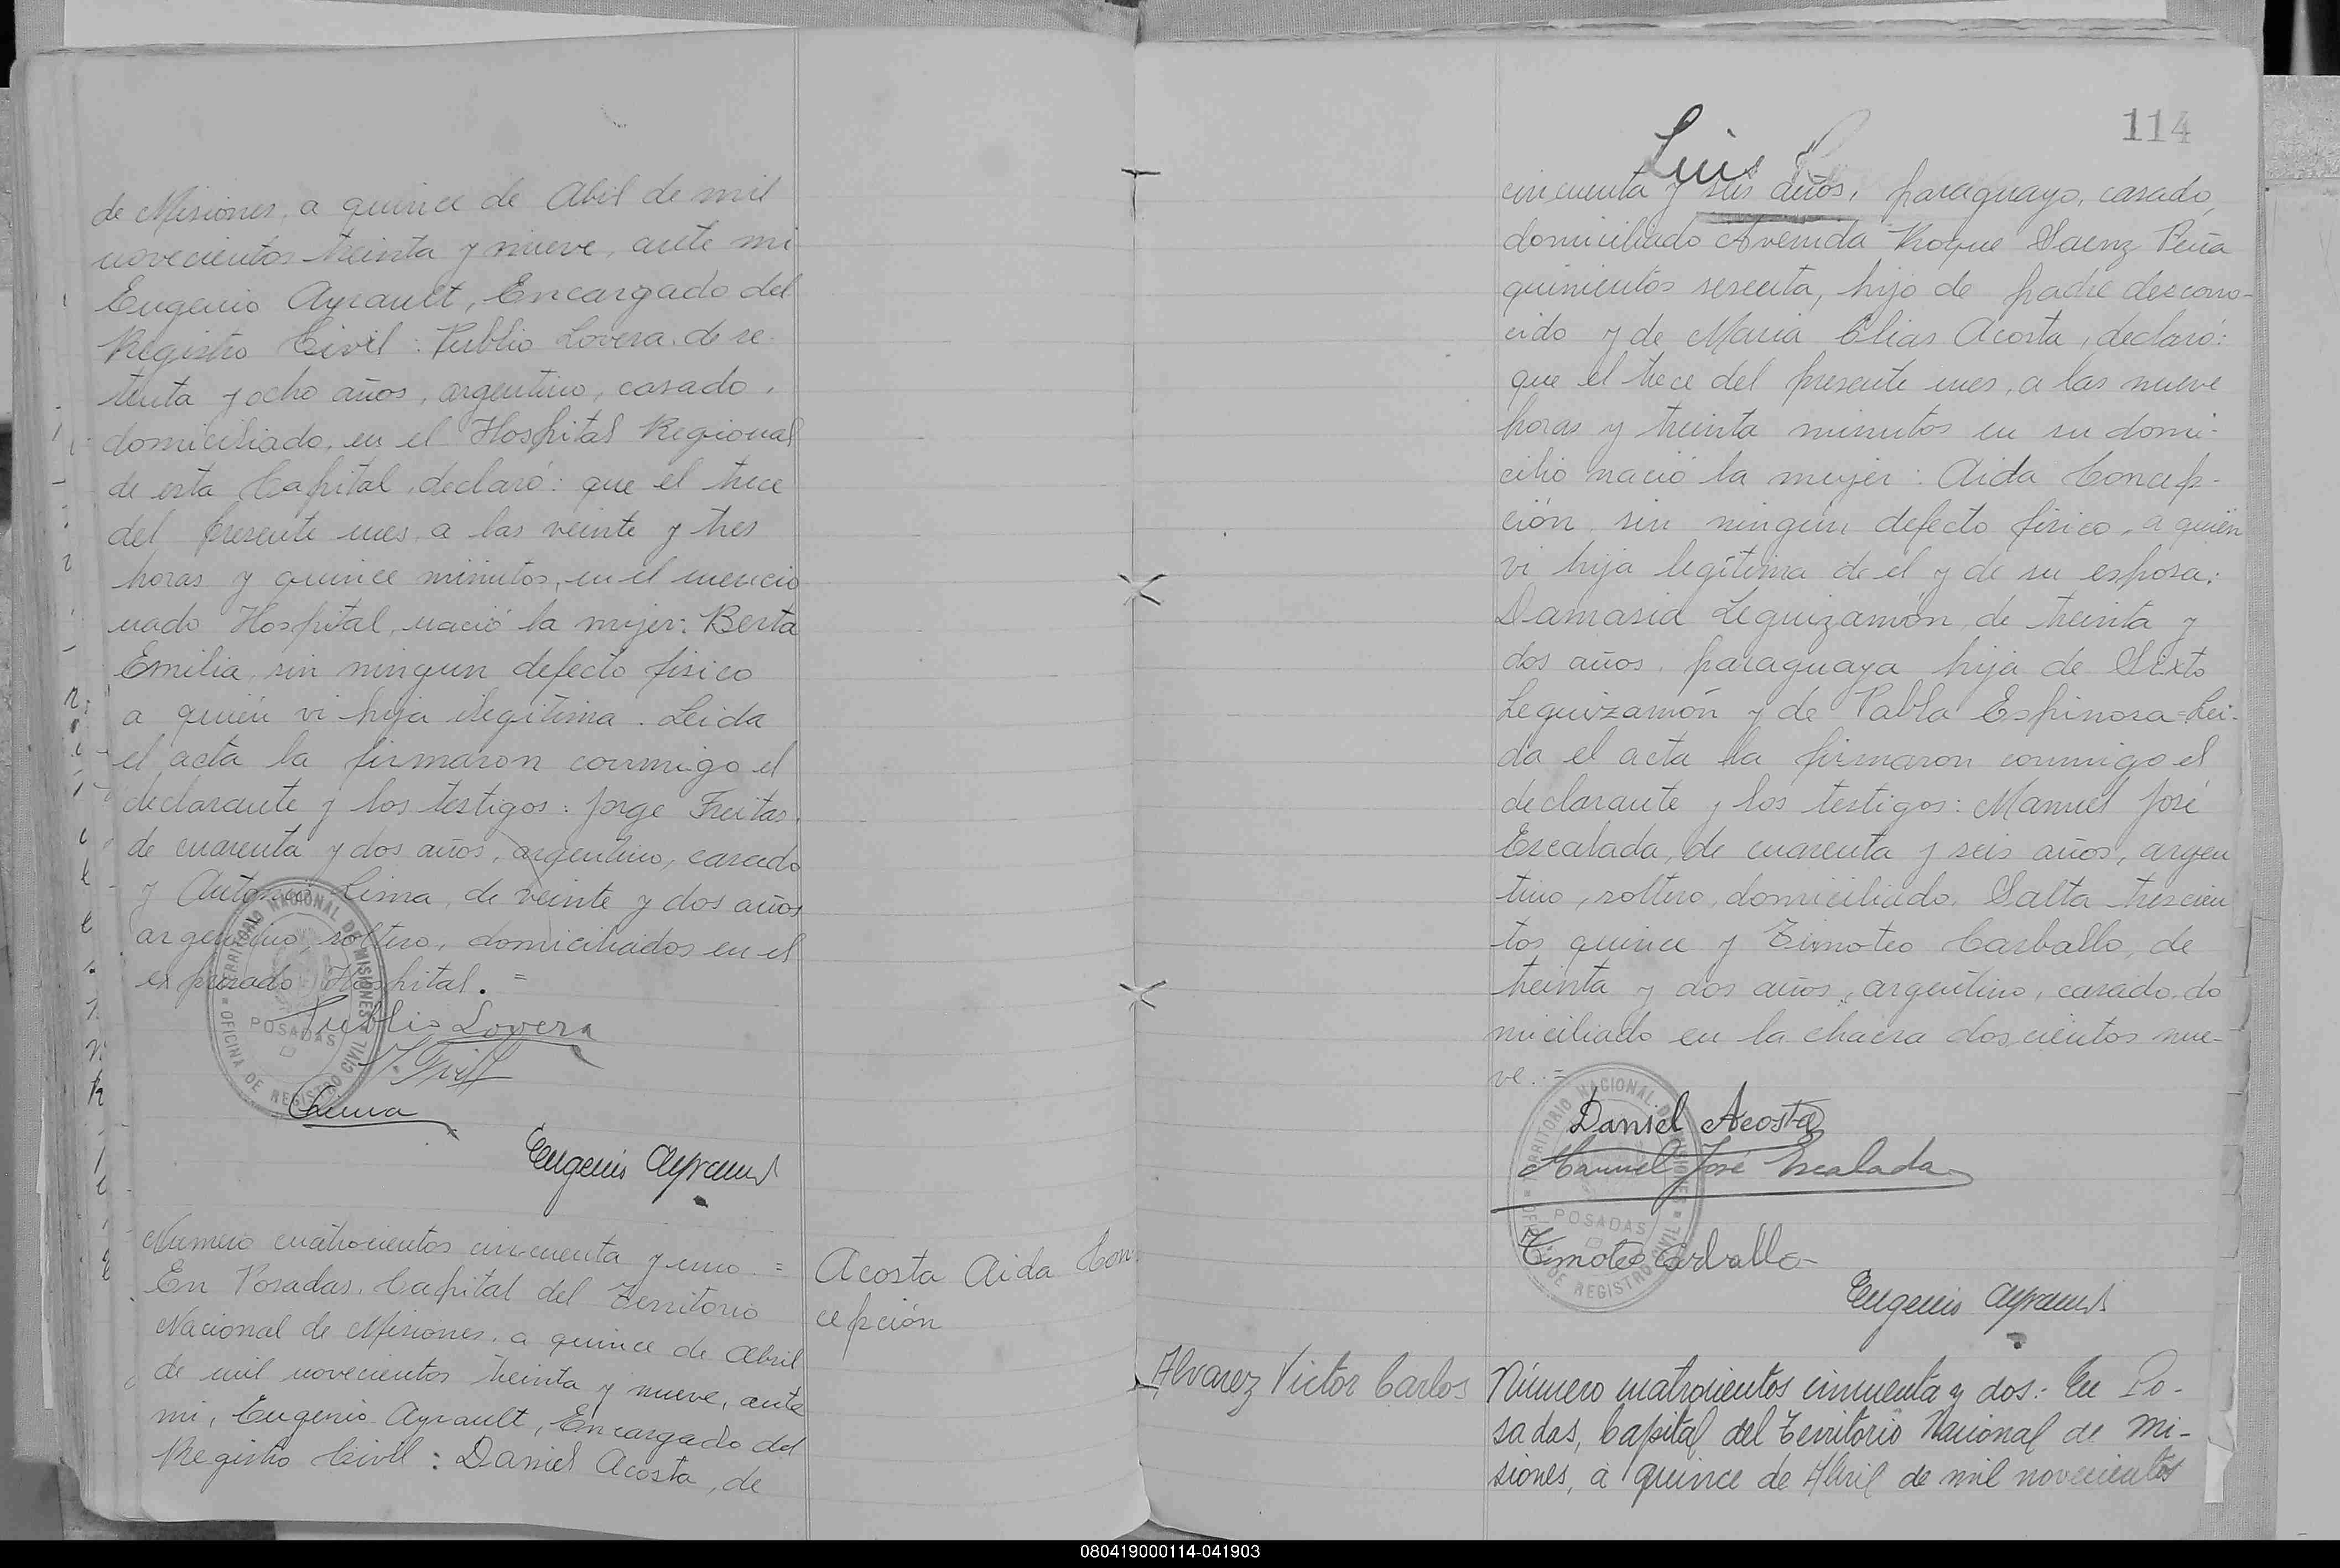 de Misiones, a quince de Abil de mil
novecientos treinta y nueve, ante mi
Eugenio Ayrault, Encargado del
Registro Civil: Publio Lovera, de se-
tenta y ocho años, argentino, casado,
domiciliado, en el Hospital Regional
de esta Capital, declaró: que el trece
del presente mes, a las veinte y tres
horas y quince minutos, en el mencio
nado Hospital, nació la mujer: Berta
Emilia, sin ningun defecto fisico
a quién vi hija ilegitima. Leida
el acta la firmaron conmigo el
declarante y los testigos: Jorge Freitas,
de cuarenta y dos años, argentino, casado
y Lima, de veinte y dos años
argentino, soltero, domiciliados en el
expresado Hospital. =
Publio Lovera
Eugenio Ayrault
Numero cuatrocientos cincuenta y uno =
En Posadas, Capital del Territorio
Nacional de Misiones, a quince de Abril
de mil novecientos treinta y nueve, ante
mi, Eugenio Ayrault, Encargado del
Registro Civil: Daniel Acosta, de
Acosta Aida Con
cepción
TERRITORIO NACIONAL DE MISIONES
POSADAS
OFICINA DE REGISTRO CIVIL
114
Luis
cincuenta y seis años, paraguayo, casado,
domiciliado Avenida Roque Saenz Peña
quinientos sesenta, hijo de padre descono-
cido y de Maria Elias Acosta, declaró:
que el trece del presente mes, a las nueve
horas y treinta minutos en su domi-
cilio nació la mujer: Aida Concep-
ción, sin ningún defecto fisico, a quién
vi hija legítima de el y de su esposa:
Damasia Leguizamón, de treinta y
dos años, paraguaya hija de Sixto
Leguizamón y de Pabla Espinosa = Lei-
da el acta la firmaron conmigo el
declarante y los testigos: Manuel José
Escalada, de cuarenta y seis años, argen
tino, soltero, domiciliado, Salta trescien
tos quince y Timoteo Carballo, de
treinta y dos años, argentino, casado, do
miciliado en la chacra doscientos nue-
ve. =
Daniel Acosta
Manuel José Escalada
Timoteo Carballo
Eugenio Ayrault
TERRITORIO NACIONAL DE MISIONES
POSADAS
OFICINA DE REGISTRO CIVIL
Alvarez Victor Carlos
Número cuatrocientos cincuenta y dos: En Po-
sadas, Capital del Territorio Nacional de Mi-
siones, a quince de Abril de mil novecientos
080419000114-041903